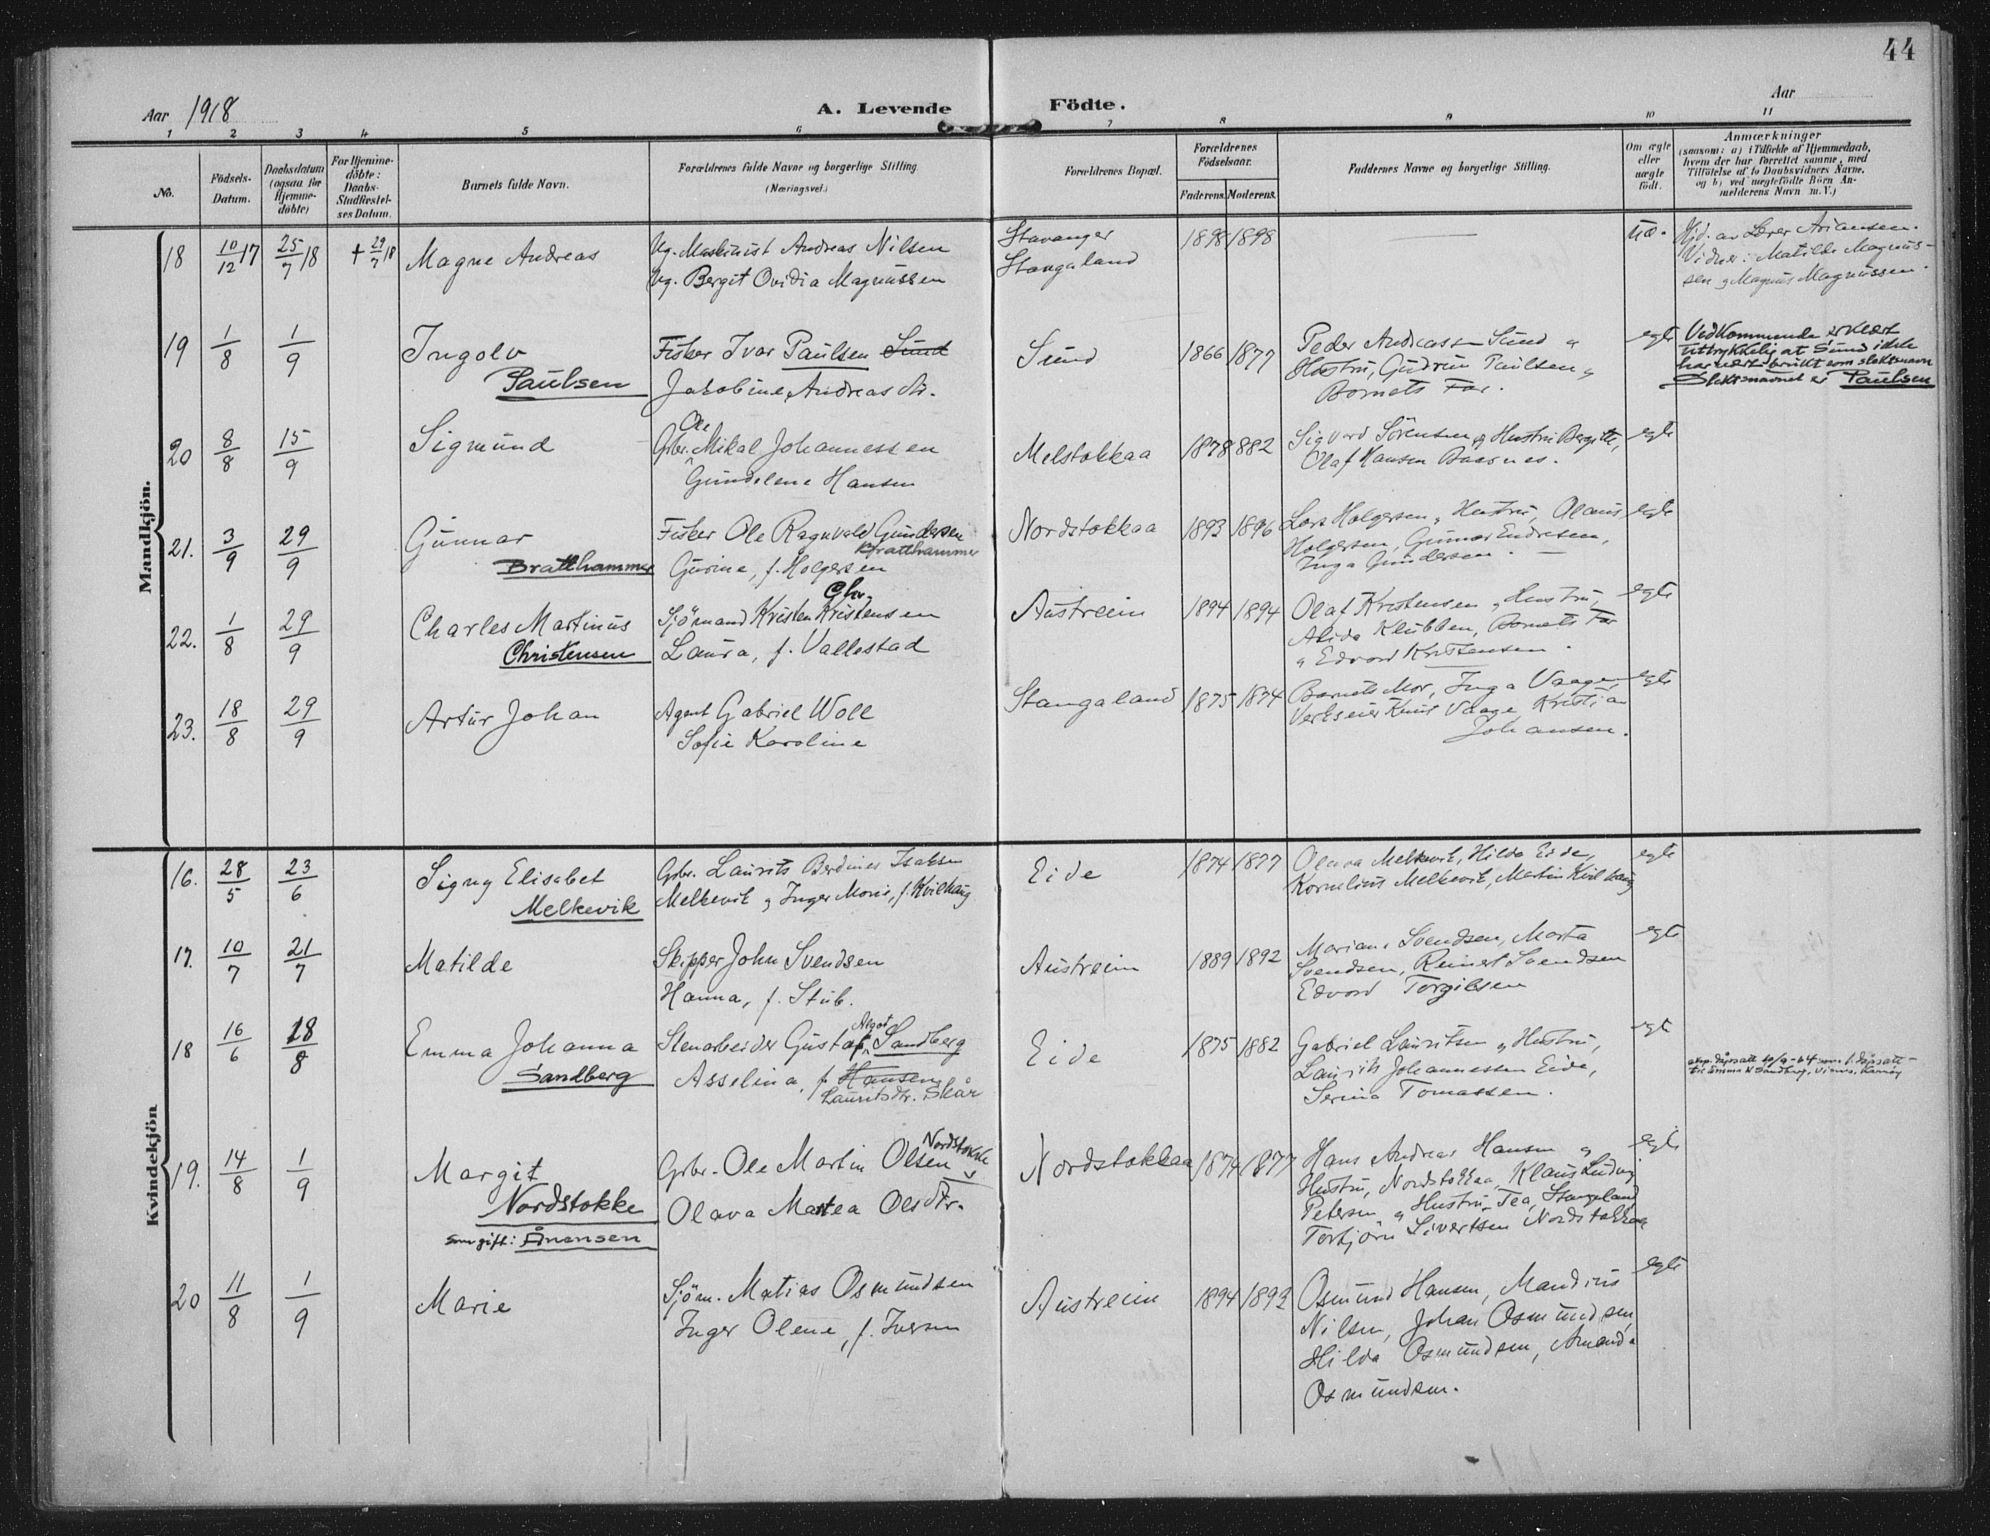 44
Aar 1918
A. Levende Födte.
Aar
1 2 3 4 5 6 7 8 9 10 11
No.
Födsels-
Datum.
Daabsdatum
(ogsaa for
Hjemme-
döbte)
For Hjemme-
döbte:
Daabs-
Stadfæstel-
ses Datum.
Barnets fulde Navn.
Forældrenes fulde Navne og borgerlige Stilling.
(Næringsvei.)
Forældrenes Bopæl.
Forældrenes
Födselsaar.
Faderens. Moderens.
Faddernes Navne og borgerlige Stilling.
Om ægte
eller
uægte
født.
Anmærkninger
(saasom: a) i Tilfælde af Hjemmedaab,
hvem der har forrettet samme, med
Tilföielse af to Daabsvidners Navne,
og b) ved uægtefödte Börn An-
melderens Navn m. V.)
Mandkjön.
18 10/12 17 25/7 18 + 29/7 18 Magne Andreas
Ug. Maskinist Andreas Nilsen
Ug. Bergit Ovidia Magnussen
Stavanger
Stangaland
1898 1898
—
uæ.
Hjd. av Lærer Ariansen.
Vidner: Matilde Magnus-
sen og Magnus Magnussen.
19 1/8 1/9 Ingolv
Paulsen
Fisker Ivar Paulsen Sund
Jakobine Andreas dr.
Sund
1866 1877
Peder Andreassen Sund og
Hustru, Gudrun Paulsen og
Barnets Far.
egte
Vedkommende erklært
uttrykkelig at Sund ikke
har vært brukt som slektsnavn
Slektsnavnet er Paulsen
20 8/8 15/9 Sigmund
Ole
Gbr. Mikal Johannessen
Gundelene Hansen
Melstokkaa
1878 1882
Sigvard Sörensen og Hustru Bergitte,
Olaf Hansen Baasnes.
egte
21. 3/9 29/9 Gunnar
Bratthammer
Fisker Ole Ragnvald Gundersen
Bratthammer
Gurine, f. Holgersen
Nordstokkaa
1893 1896
Lars Holgersen og Hustru, Olaus
Holgersen, Gunnar Endresen,
Inga Gundersen.
egte
22. 1/8 29/9 Charles Martinus
Christensen
Chr.
Sjömand Kristen Kristensen
Laura, f. Vallestad
Austreim
1894 1894
Olaf Kristensen og Hustru,
Alida Klubben, Barnets Far
og Edvard Kristensen.
egte
23. 18/8 29/9 Artur Johan
Agent Gabriel Woll
Sofie Karoline
Stangaland
1875 1874
Barnets Mor, Inga Vaage,
Verkseier Knut Vaage, Kristian
Johansen.
egte
Kvindekjön
16. 28/5 23/6 Signy Elisabet
Melkevik
Gbr. Laurits Berdines Isaksen
Melkevik og Inger Marie, f. Kvilhaug
Eide
1874 1877
Olava Melkevik, Hilda Eide,
Kornelius Melkevik, Martin Kvilhaug
egte
17. 10/7 21/7 Matilde
Skipper John Svendsen
Hanna, f. Stub.
Austreim
1889 1892
Mariane Svendsen, Marta
Svendsen, Reinert Svendsen
Edvard Torgilsen
egte
18 16/6 18/8 Emma Johanna
Sandberg
Algot
Stenarbeider Gustaf Sandberg
Asseline, f. Hansen
Lauritsdtr. Skår
Eide
1875 1882
Gabriel Lauritsen og Hustru,
Laurits Johannessen Eide,
Serina Tomassen.
egte
19. 14/8 1/9 Margit
Nordstokke
Som gift: Ånensen
Nordstokke
Gbr. Ole Martin Olsen
Olava Martea Olsdtr.
Nordstokkaa
1874 1877
Hans Andreas Hansen og
Hustru, Nordstokkaa, Klaus Ludvig
Petersen og Hustru Tea, Stangeland,
Torbjörn Sivertsen Nordstokkaa
egte
20 11/8 1/9 Marie
Sjöm. Matias Osmundsen
Inger Olene, f. Iversen
Austreim
1894 1892
Osmund Hansen, Mandius
Nilsen, Johan Osmundsen,
Hilda Osmundsen, Amanda
Osmundsen.
egte